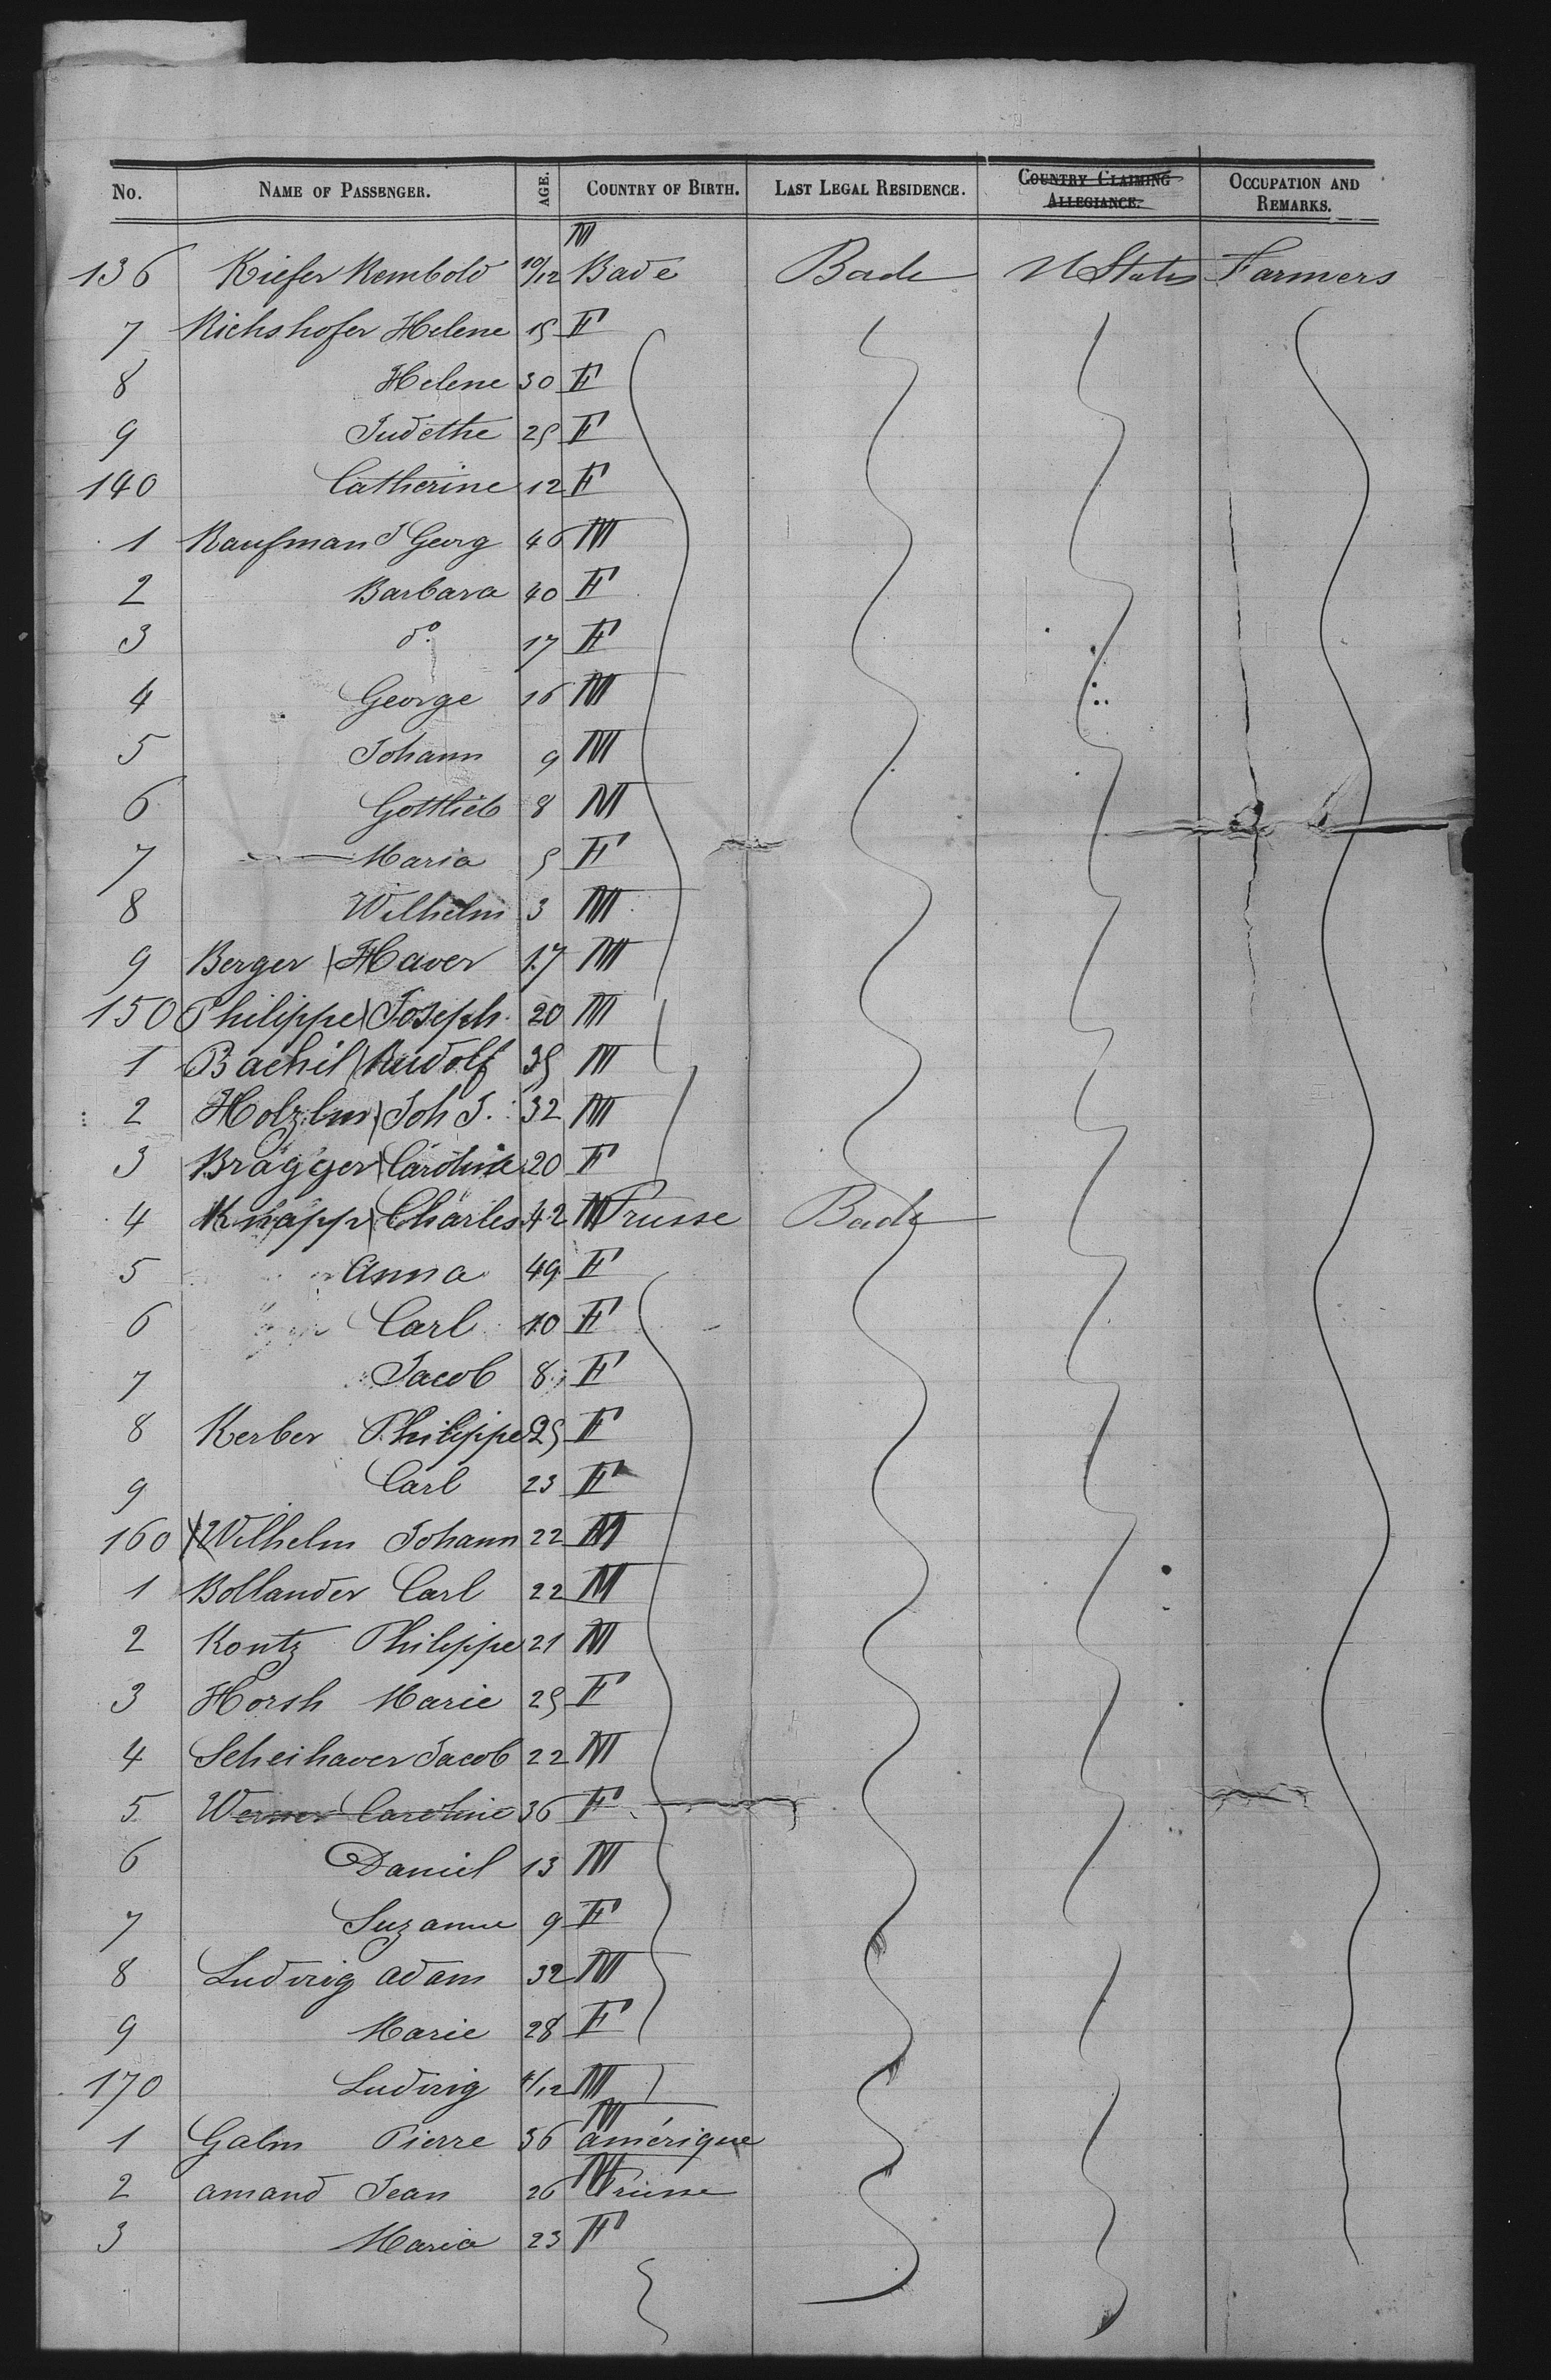 No. NAME OF PASSENGER. AGE. COUNTRY OF BIRTH. LAST LEGAL RESIDENCE. COUNTRY CLAIMING ALLEGIANCE. OCCUPATION AND REMARKS.
M
136 Kiefer Rembold 10/12 Bade Bade U States Farmers
7 Richshofer Helene 15 F
8 Helene 30 F
9 Judethe 25 F
140 Catherine 12 F
1 Kaufman J Georg 46 M
2 Barbara 40 F
3 do. 17 F
4 George 16 M
5 Johann 9 M
6 Gottlieb 8 M
7 Maria 5 F
8 Wilhelm 3 M
9 Berger Xaver 17 M
150 Philippe Joseph 20 M
1 Bachil Rudolf 35 M
2 Joh J. 32 M
3 Brägger Caroline 20 F
4 Knapp Charles 42 M Prusse Bade
5 Anna 49 F
6 Carl 10 F
7 Jacob 8 F
8 Kerber Philippe 25 F
9 Carl 23 F
160 Wilhelm Johann 22 M
1 Bollander Carl 22 M
2 Kontz Philippe 21 M
3 Horsh Marie 25 F
4 Scheihaver Jacob 22 M
5 Werner Caroline 36 F
6 Daniel 13 M
7 Suzanne 9 F
8 Ludwig adam 32 M
9 Marie 28 F
170 Ludwig 4/12 M
M
1 Galm Pierre 36 amérique
M
2 amand Jean 26 Prusse
3 Maria 23 F